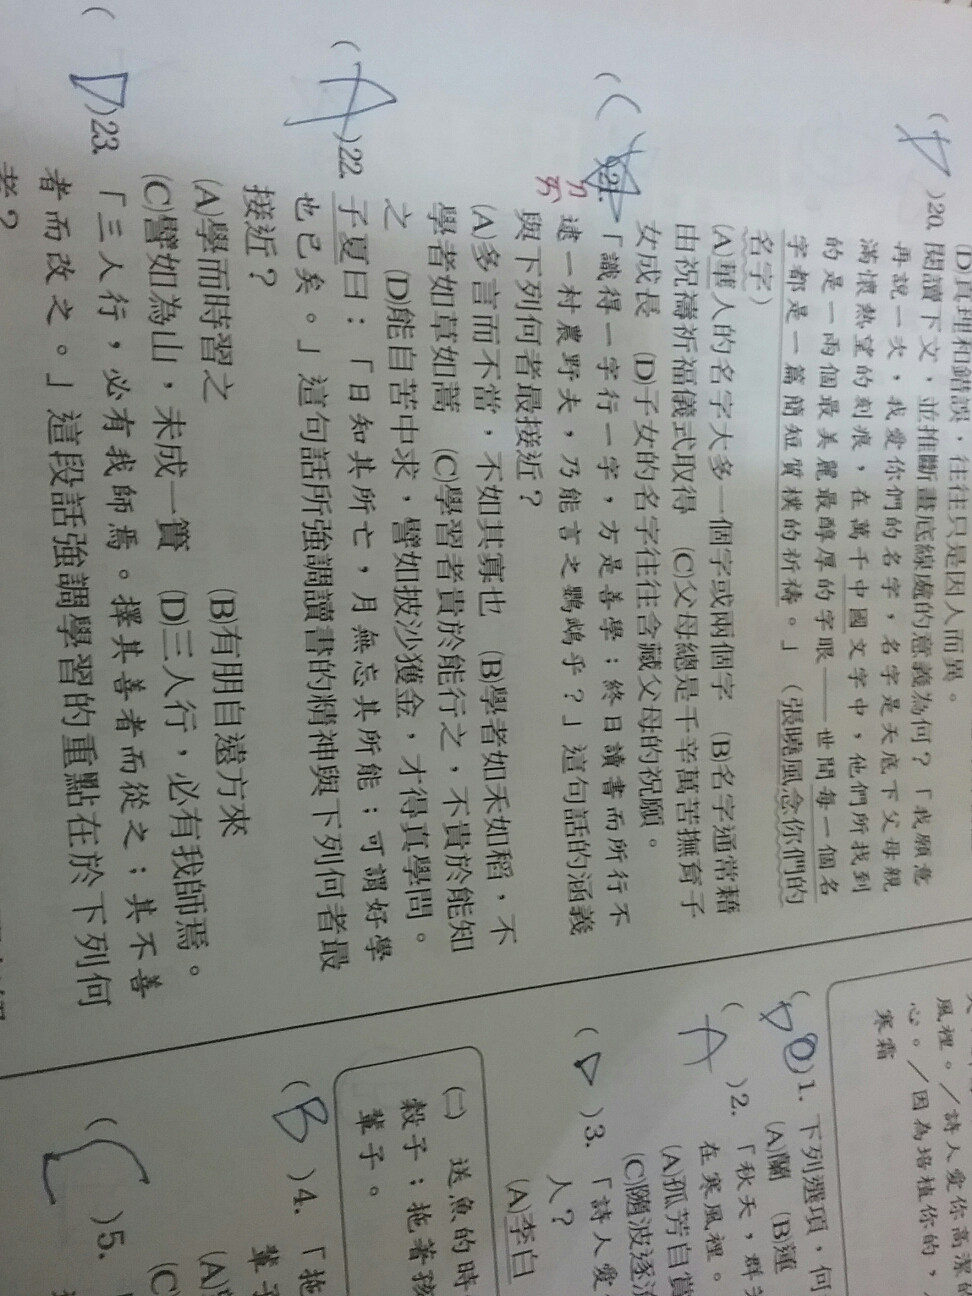 (D)真理和錯誤，往往只是因人而異。
(D)20. 閱讀下文，並推斷畫底線處的意義為何？「我願意
再說一次，我愛你們的名字，名字是天底下父母親
滿懷熱望的刻痕，在萬千中國文字中，他們所找到
的是一兩個最美麗最醇厚的字眼——世間每一個名
字都是一篇簡短質樸的祈禱。」（張曉風念你們的
名字）
(A)華人的名字大多一個字或兩個字 (B)名字通常藉
由祝禱祈福儀式取得 (C)父母總是千辛萬苦撫育子
女成長 (D)子女的名字往往含藏父母的祝願。
(C)21. 「識得一字行一字，方是善學；終日讀書而所行不
逮一村農野夫，乃能言之鸚鵡乎？」這句話的涵義
ㄌㄞ
與下列何者最接近？
(A)多言而不當，不如其寡也 (B)學者如禾如稻，不
學者如草如蒿 (C)學習者貴於能行之，不貴於能知
之 (D)能自苦中求，譬如披沙獲金，才得真學問。
(A)22. 子夏曰：「日知其所亡，月無忘其所能；可謂好學
也已矣。」這句話所強調讀書的精神與下列何者最
接近？
(A)學而時習之 (B)有朋自遠方來
(C)譬如為山，未成一簣 (D)三人行，必有我師焉。
(D)23. 「三人行，必有我師焉。擇其善者而從之；其不善
者而改之。」這段話強調學習的重點在於下列何
者？
風裡。／詩人愛你高潔的
心。／因為培植你的，
寒霜
(D)1. 下列選項，何
(A)蘭 (B)蓮
(A)2. 「秋天，群
在寒風裡。
(A)孤芳自賞
(C)隨波逐流
(D)3. 「詩人愛
人？
(A)李白
(二) 送魚的時
穀子；拖著孩
輩子。
(B)4. 「拖
輩子
(A)
(C)
(C)5.